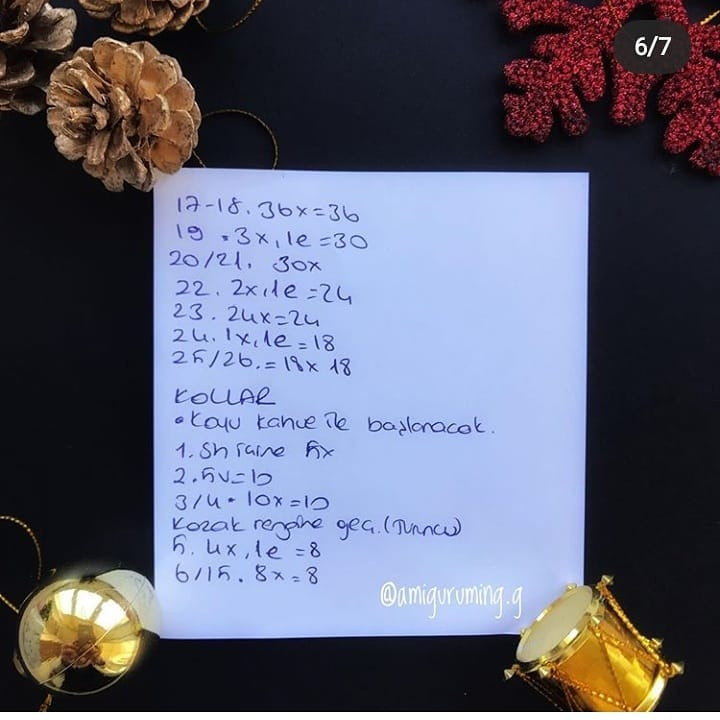 6/7
17-18. 36x=36
19 . 3x,1e=30
20/21. 30x
22. 2x,1e=24
23. 24x=24
24. 1x,1e=18
25/26.=18x 18
KOLLAR
• Koyu kahve ile başlanacak.
1. Sh içine 5x
2. 5v=10
3/4. 10x=10
Kazak rengine geç.(Turuncu)
5. 4x,1e=8
6/15. 8x=8
@amiguruming.g